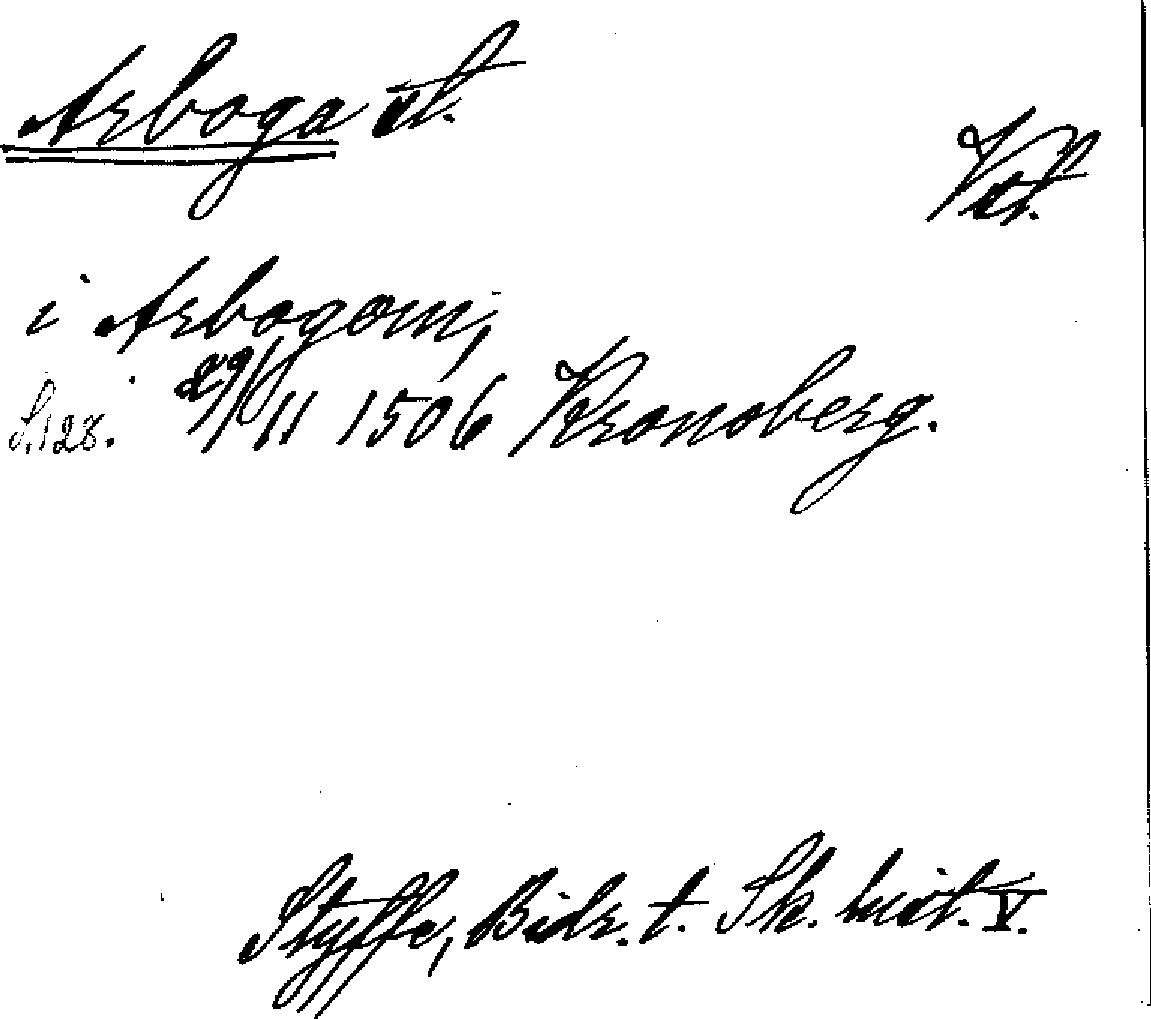 Arboga st.
Vst.
i Arbogom,
S. 128. 29/11 1506 Kronoberg.
Styffe, Bidr. t. Sk. hist. V.